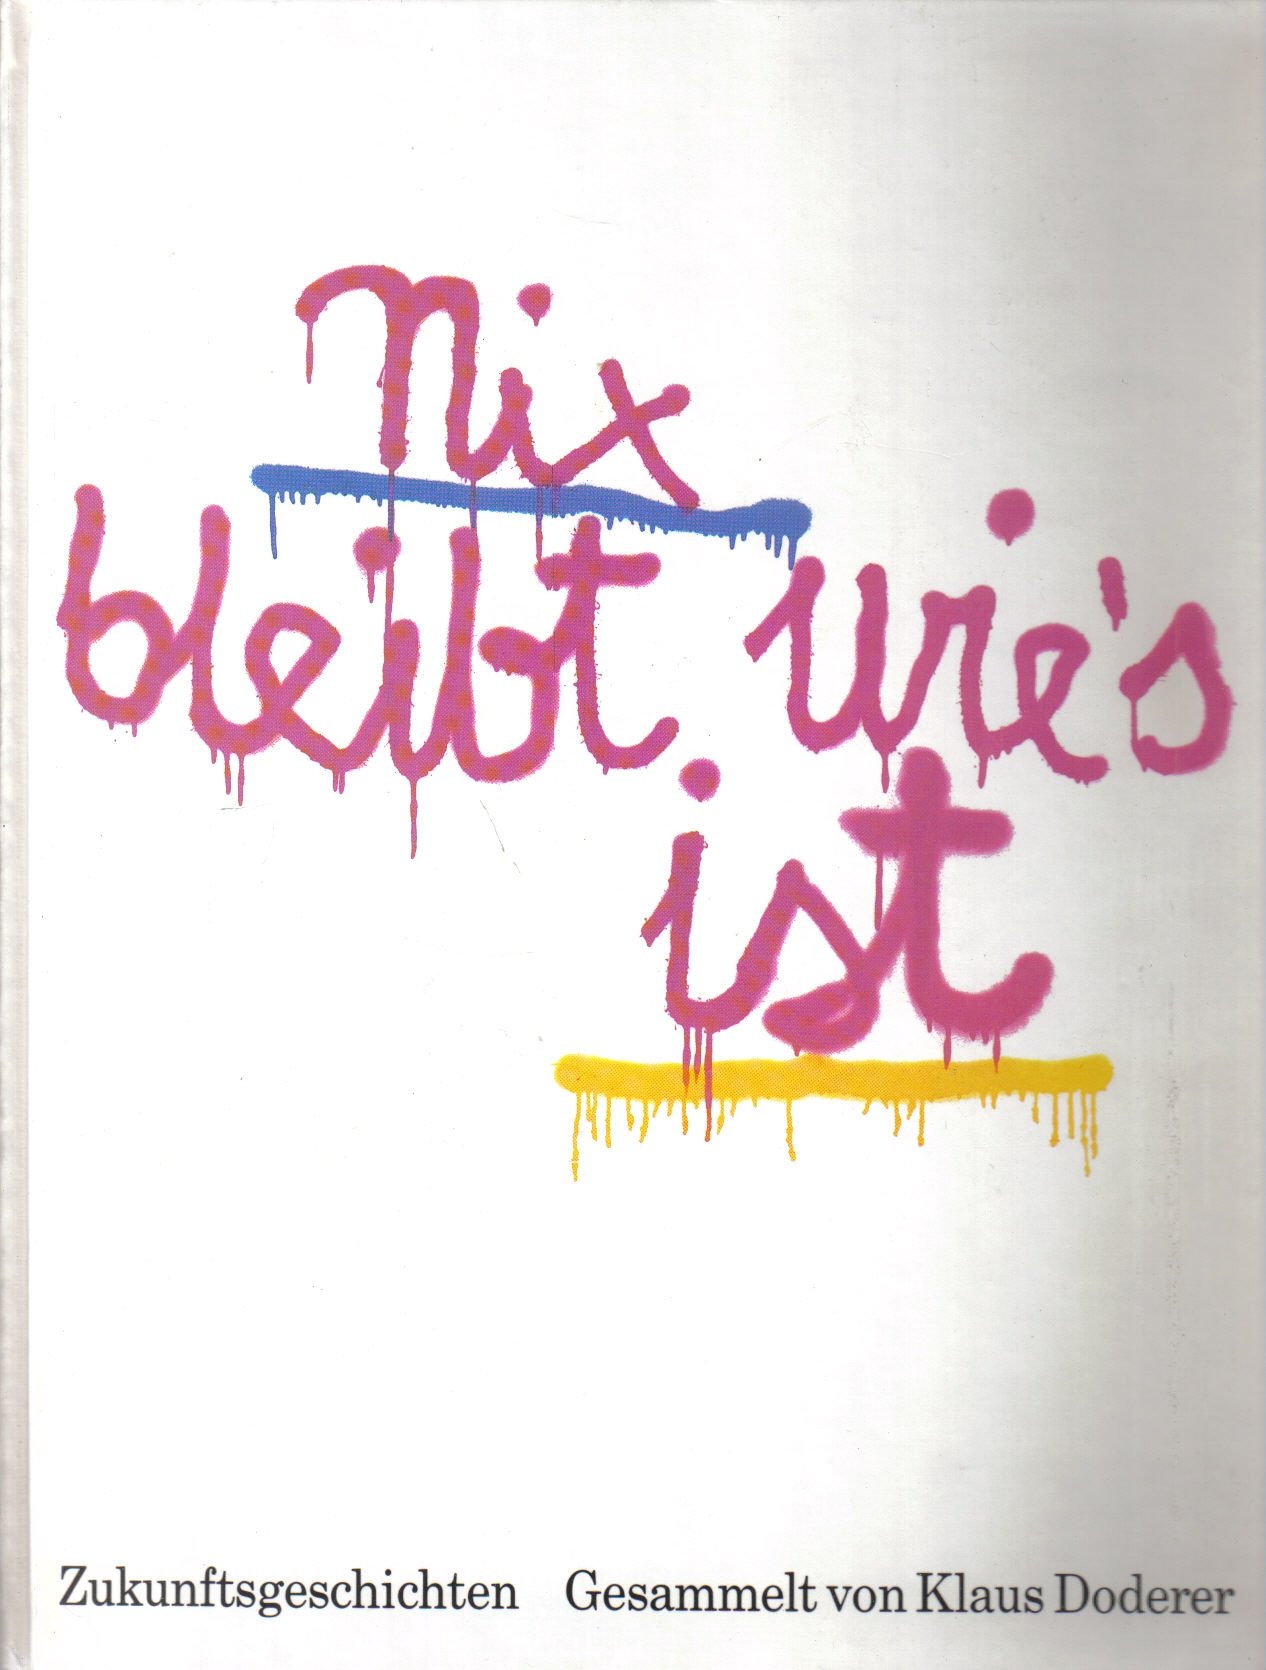 Nix
bleibt wie's
ist
Zukunftsgeschichten Gesammelt von Klaus Doderer